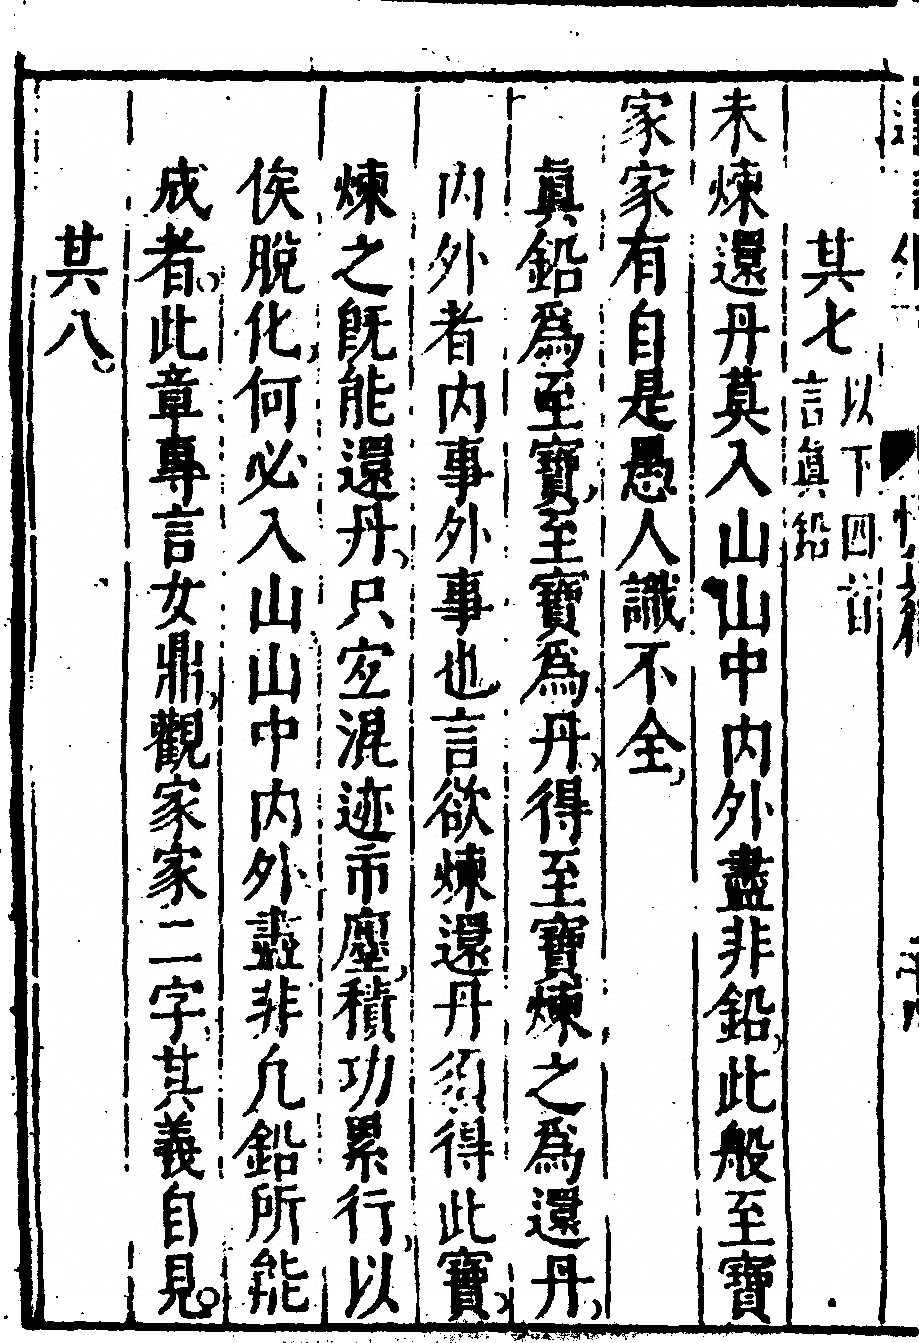 其七 以下四首言眞鉛
未煉還丹莫入山山中內外盡非鉛此般至寶
家家有自是愚人識不全
眞鉛爲至寶至寶爲丹得至寶煉之爲還丹
內外者內事外事也言欲煉還丹須得此寶
煉之旣能還丹只宜混迹市塵積功累行以
俟脫化何必入山山中內外盡非凡鉛所能
成者此章專言女鼎觀家家二字其義自見
其八